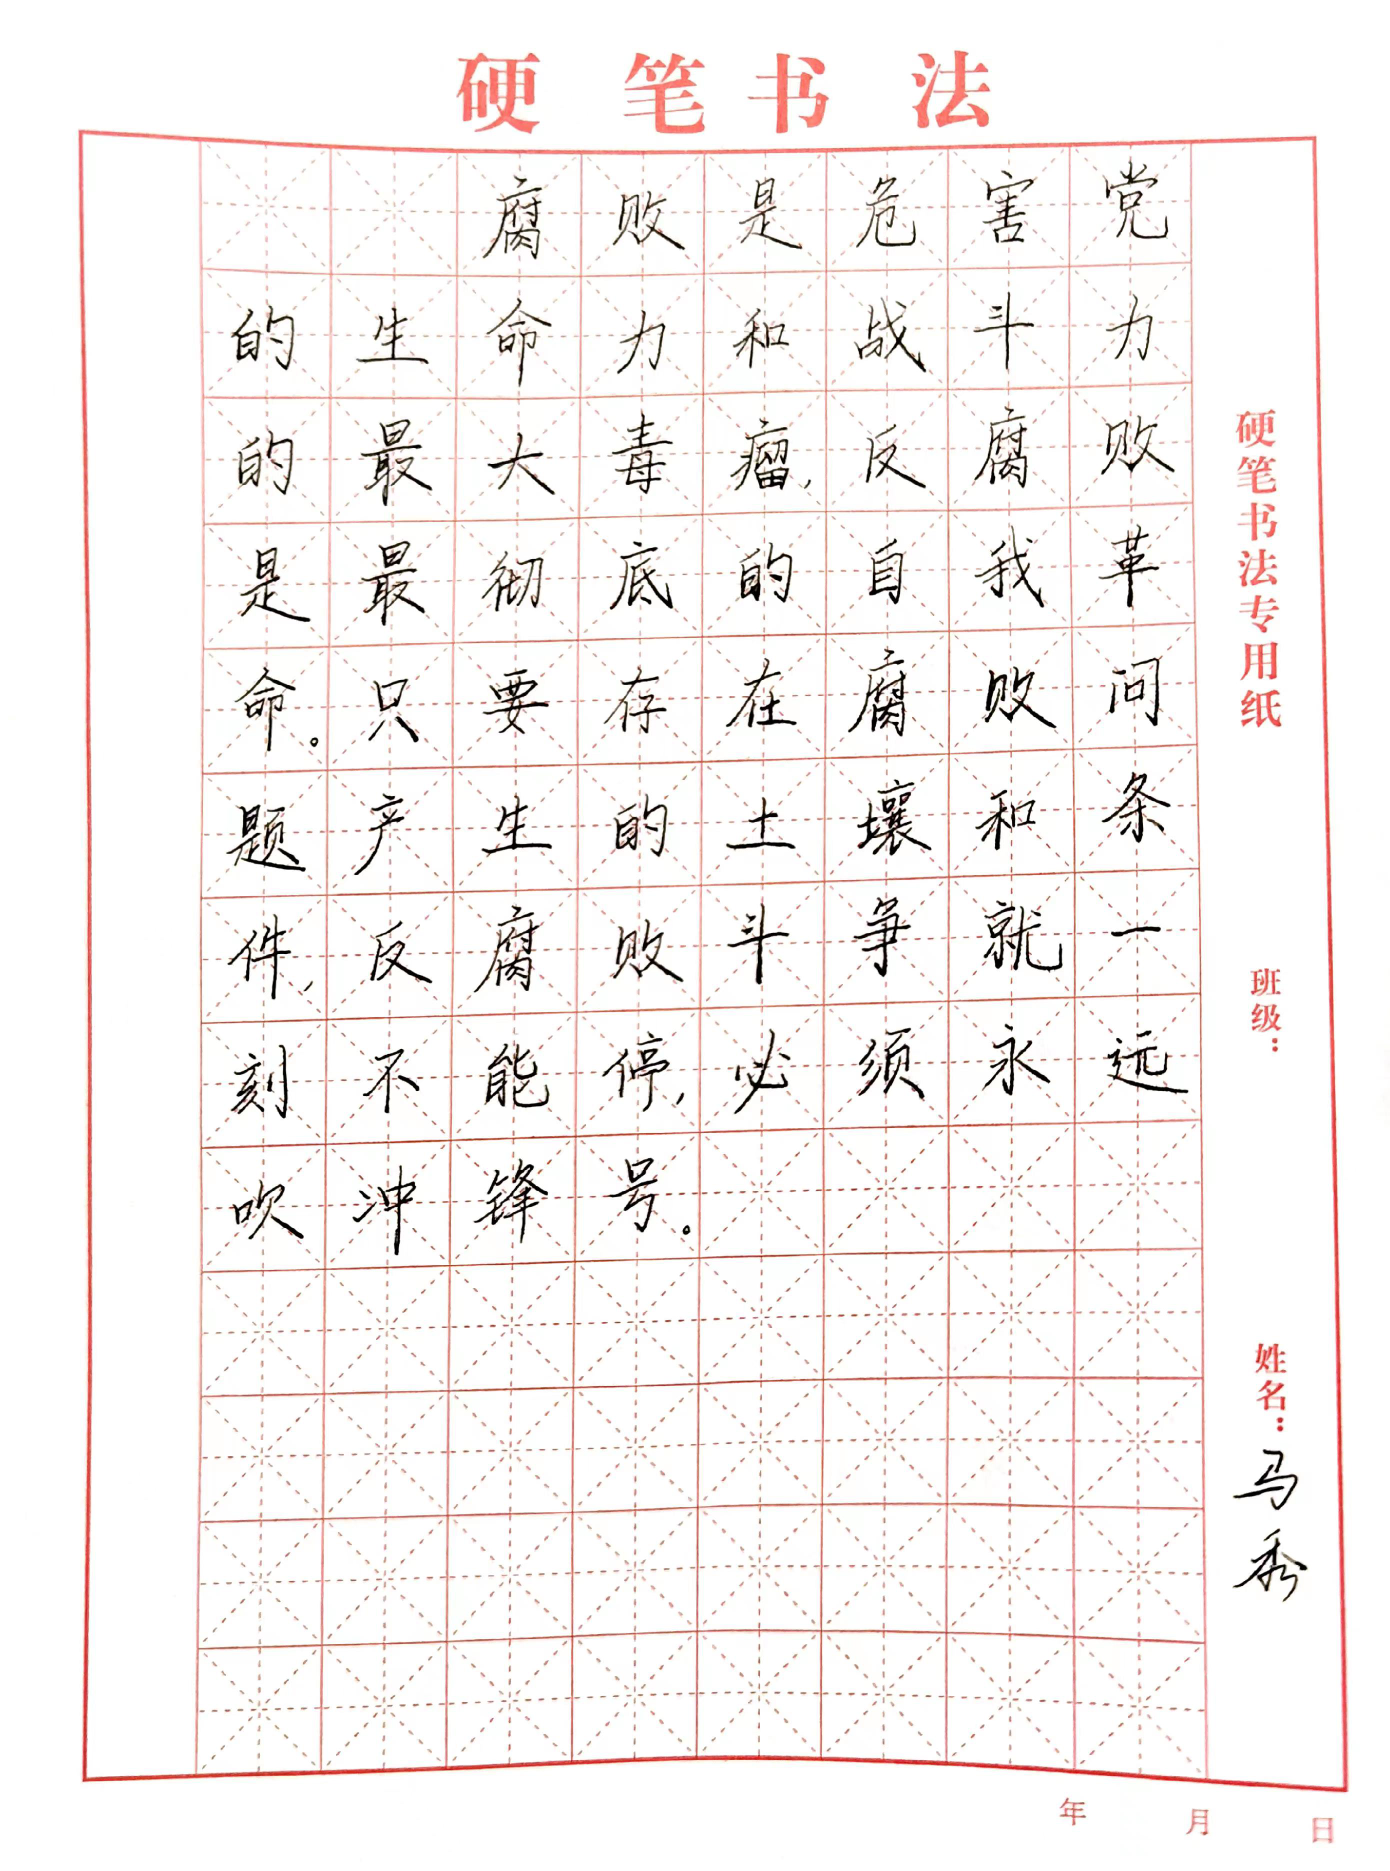 硬笔书法
腐败是危害党
的生命力和战斗力
的最大毒瘤,反腐败
是最彻底的自我革
命。只要存在腐败问
题产生的土壤和条
件,反腐败斗争就一
刻不能停,必须永远
吹冲锋号。
硬笔书法专用纸
班级:
姓名:马秀
年 月 日